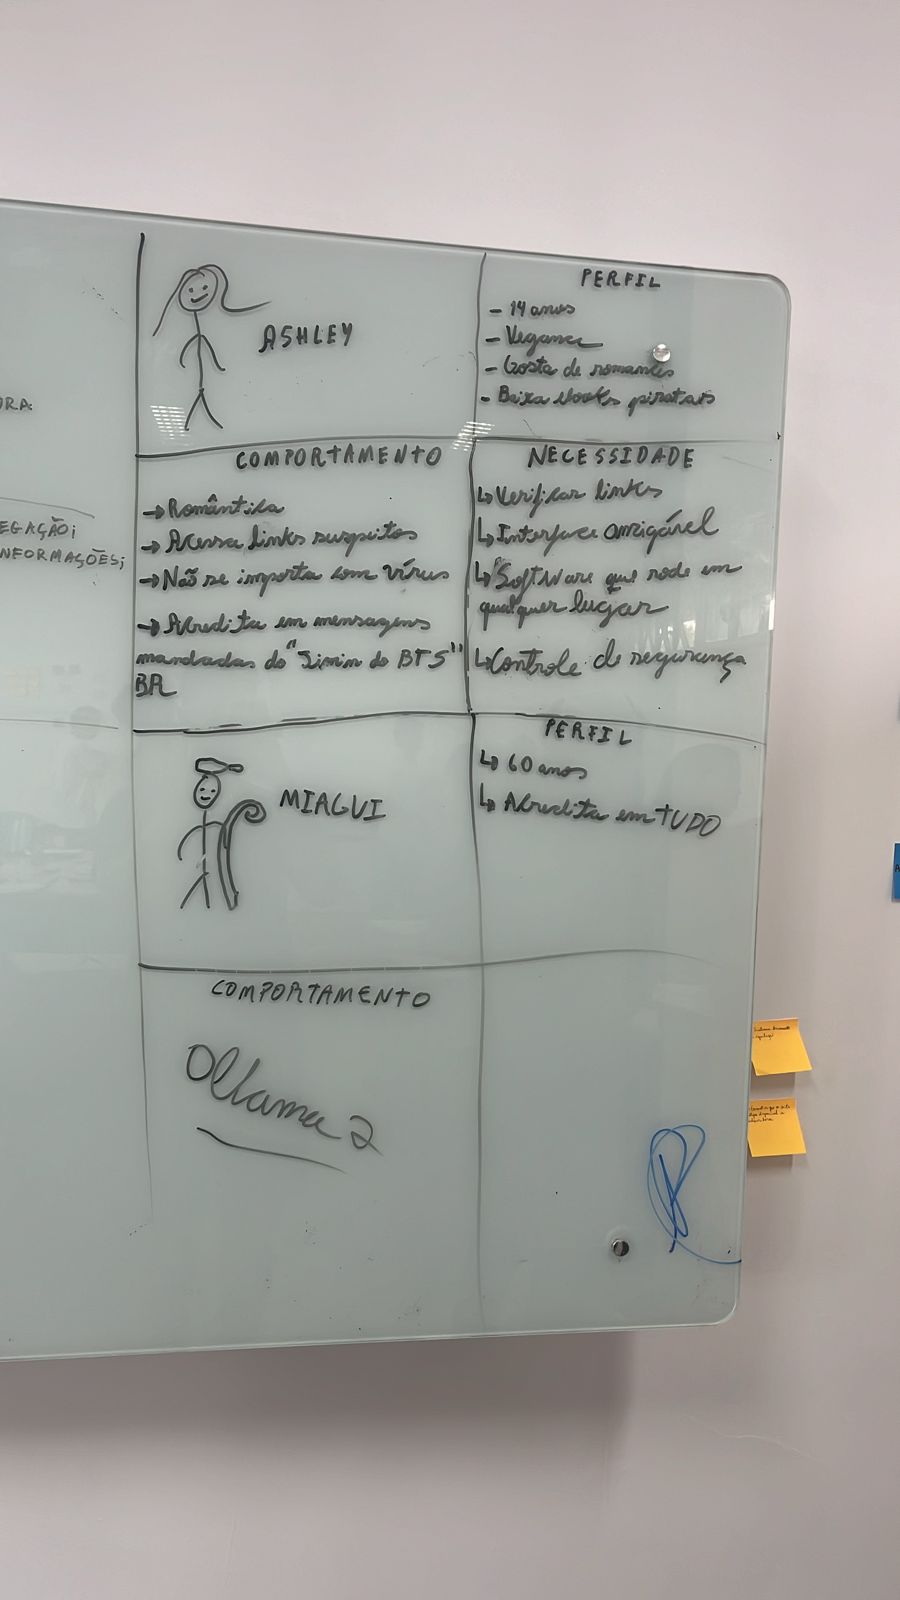 ASHLEY
PERFIL
- 14 anos
- Vegana
- Gosta de romances
- Baixa ebooks piratas
COMPORTAMENTO
→ Romântica
→ Acessa links suspeitos
→ Não se importa com vírus
→ Acredita em mensagens
mandadas do "Jimin do BTS"
BR
NECESSIDADE
↳ Verificar links
↳ Interface amigável
↳ Software que rode em
qualquer lugar
↳ Controle de segurança
MIAGUI
PERFIL
↳ 60 anos
↳ Acredita em TUDO
COMPORTAMENTO
Ollama 2
EGAÇÃO;
NFORMAÇÕES;